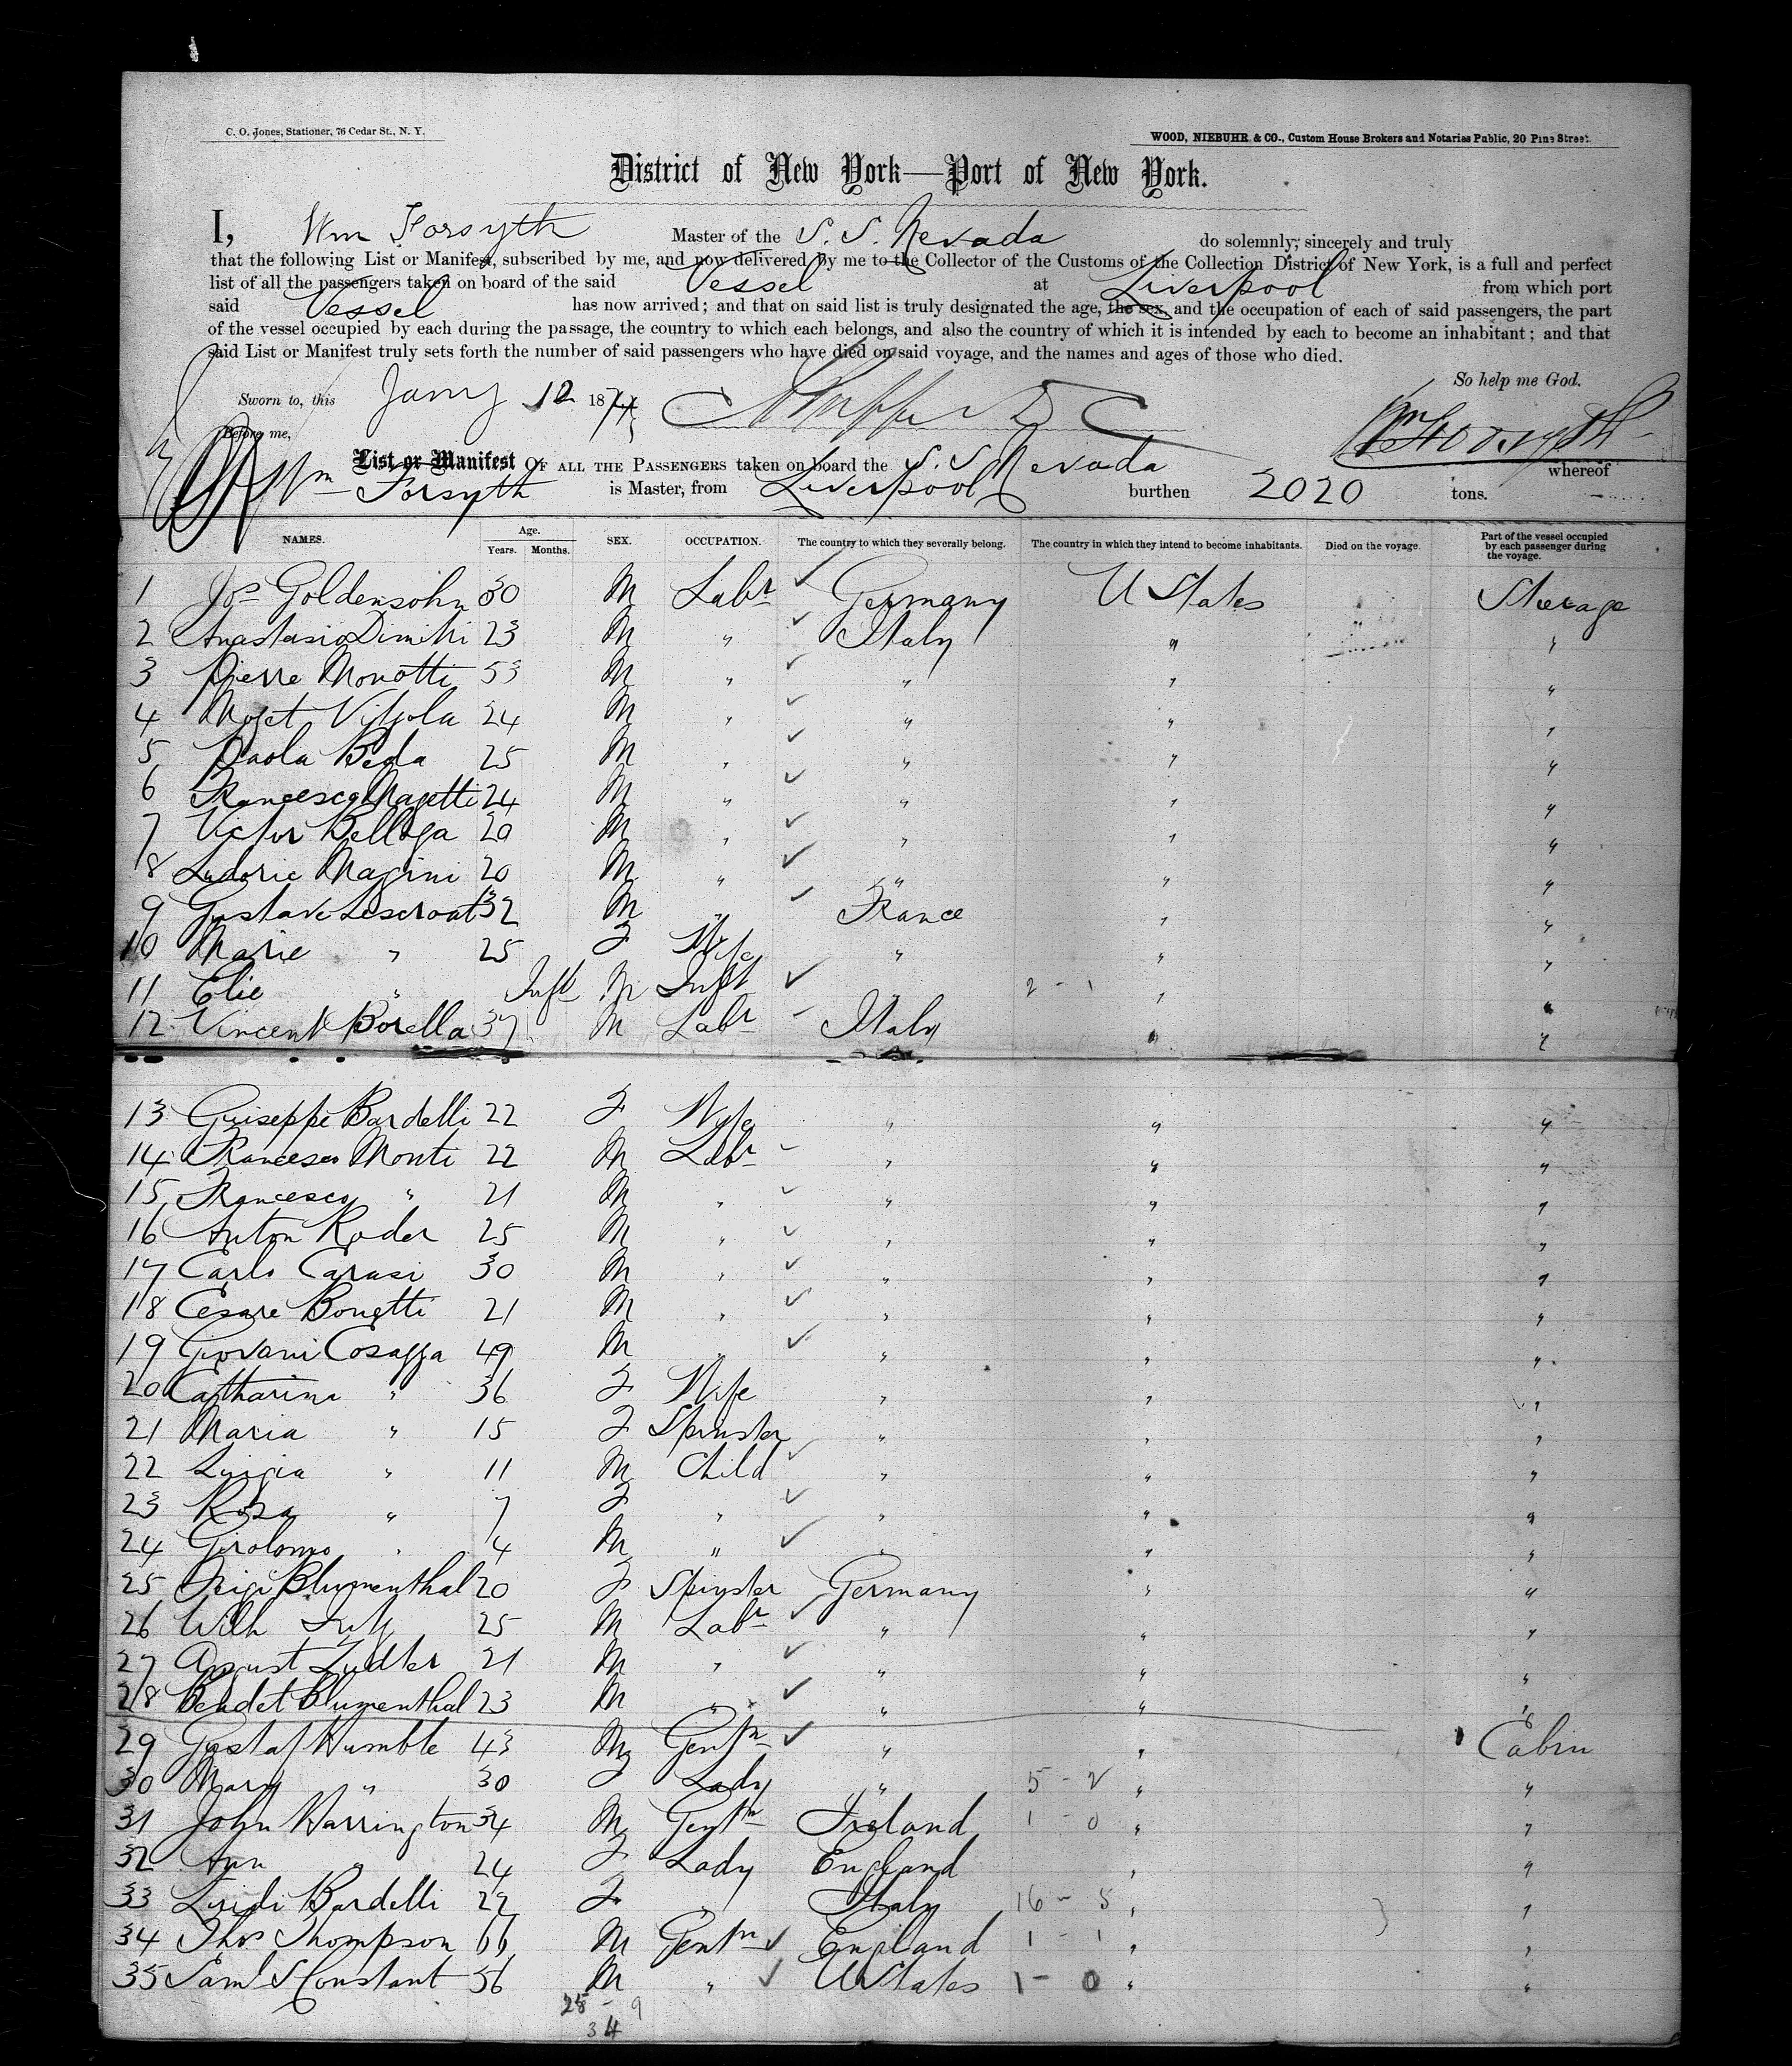 C. O. Jones, Stationer, 76 Cedar St., N. Y.
WOOD, NIEBUHR & CO., Custom House Brokers and Notaries Public, 20 Pine Street.
District of New York—Port of New York.
I, Wm Forsyth Master of the S. S. Nevada do solemnly, sincerely and truly
that the following List or Manifest, subscribed by me, and now delivered by me to the Collector of the Customs of the Collection District of New York, is a full and perfect
list of all the passengers taken on board of the said Vessel at Liverpool from which port
said Vessel has now arrived; and that on said list is truly designated the age, the sex, and the occupation of each of said passengers, the part
of the vessel occupied by each during the passage, the country to which each belongs, and also the country of which it is intended by each to become an inhabitant; and that
said List or Manifest truly sets forth the number of said passengers who have died on said voyage, and the names and ages of those who died.
So help me God.
Sworn to, this Jany 12 1874
Wm Forsyth
Before me,
List or Manifest OF ALL THE PASSENGERS taken on board the S. S Nevada whereof
Wm Forsyth is Master, from Liverpool burthen 2020 tons.
NAMES. Age. Years. Months. SEX. OCCUPATION. The country to which they severally belong. The country in which they intend to become inhabitants. Died on the voyage. Part of the vessel occupied by each passenger during the voyage.
1 Jos Goldensohn 30 M Labr Germany U States Steerage
2 Anastasio Dimitri 23 M " Italy " "
3 Pierre Monotti 53 M " " " "
4 Vitgola 24 M " " " "
5 Paola Beda 25 M " " " "
6 Francesco Magetti 24 M " " " "
7 Victor Belloga 20 M " " " "
8 Ludoric Magini 20 M " " " "
9 Gustave Lescroat 32 M " France " "
10 Marie " 25 F Wife " " "
11 Elie " Inft M Inft " 2 - 1 " "
12 Vincent Borella 37 M Labr Italy " "
13 Guiseppe Bardelli 22 F Wife " " "
14 Francesco Monti 22 M Labr " " "
15 Francesco " 21 M " " " "
16 Anton Roder 25 M " " " "
17 Carlo Carasi 30 M " " " "
18 Cesare Bonetti 21 M " " " "
19 Giovani Cosagga 49 M " " " "
20 Catharina " 36 F Wife " " "
21 Maria " 15 F Spinster " " "
22 Luigia " 11 M Child " " "
23 Rosa " 7 F " " " "
24 Girolomo " 4 M " " " "
25 Blumenthal 20 F Spinster Germany " "
26 Wilh 25 M Labr " " "
27 August Zudter 21 M " " " "
28 Bendet Blumenthal 23 M " " " "
29 Gustaf Humble 43 M Gentn " " Cabin
30 Mary " 30 F Lady " 5 - 2 " "
31 John Harrington 34 M Gentn Ireland 1 - 0 " "
32 Ann " 24 F Lady England " "
33 Luidi Bardelli 22 F " Italy 16 - 5 " "
34 Thos Thompson 66 M Gentn England 1 - 1 " "
35 Saml S Constant 56 M " U States 1 - 0 " "
25 - 9
34